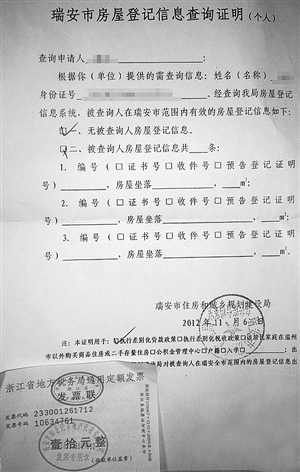 瑞安市房屋登记信息查询证明(个人)
查询申请人 :
根据你(单位)提供的需查信息:姓名(名称)
身份证号 ,经查询我局房屋登记
信息系统、被查询人在瑞安市范围内有效的房屋登记信息如下:
一、无被查询人房屋登记信息。
☐二、被查询人房屋登记信息共___条:
1. 编号(☐证书号☐收件号☐预告登记证明
号)________,房屋坐落________,____㎡;
2. 编号(☐证书号☐收件号☐预告登记证明
号)________,房屋坐落________,____㎡;
3. 编号(☐证书号☐收件号☐预告登记证明
号)________,房屋坐落________,____㎡;
瑞安市住房和城乡规划建设局
2012年11月6日
注:本证明用于:☑执行差别化贷款政策☐执行差别化税收政策☐该居民家庭在温州
市以外购买商品住房或二手存量住房☐公积金管理中心☐户籍☐入学☐
局对被查询人在瑞安市全市范围内的房屋登记
浙江省地方税务局通用定额发票
发票联
发票代码 233001261712
发票号码 10634761
壹拾元整
发票专用章
(收款单位盖章)